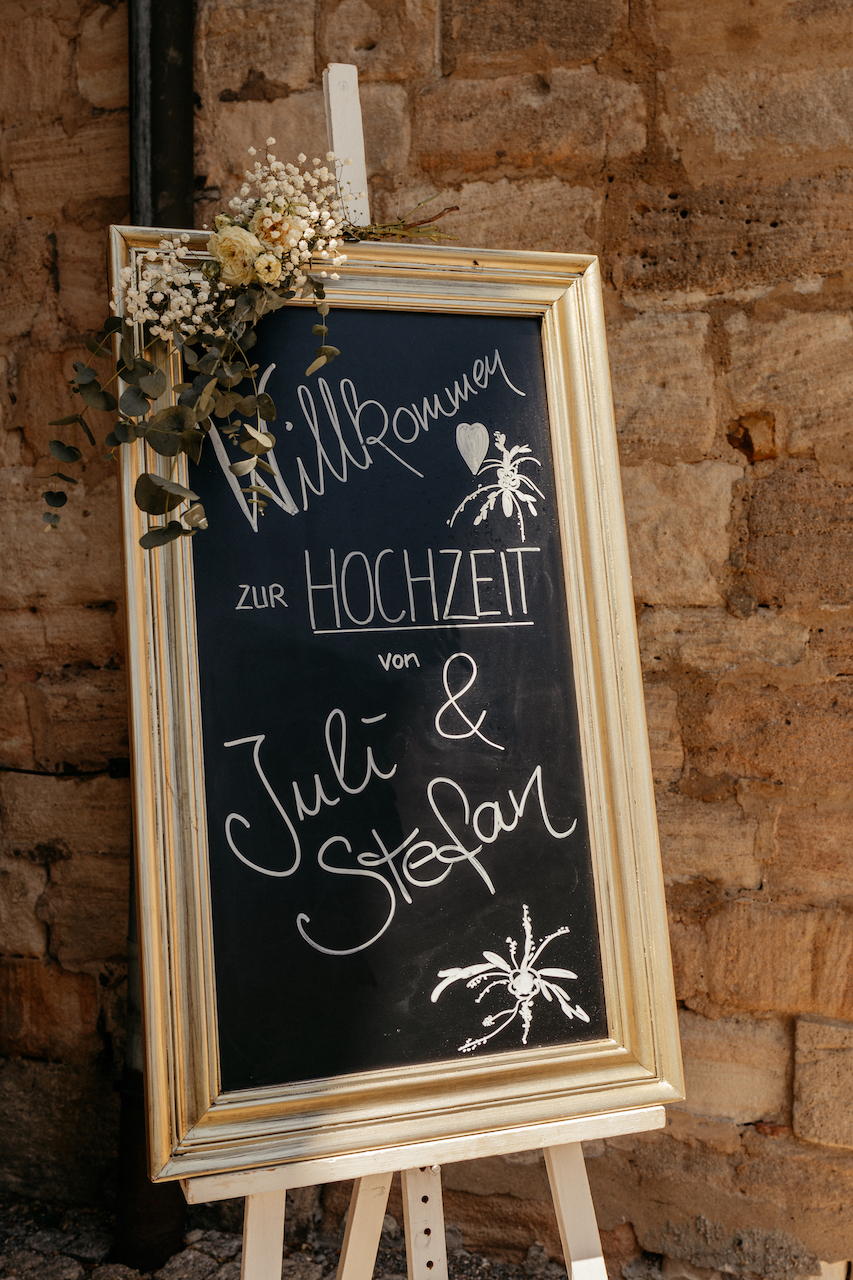 Willkommen
ZUR HOCHZEIT
von
Juli &
Stefan